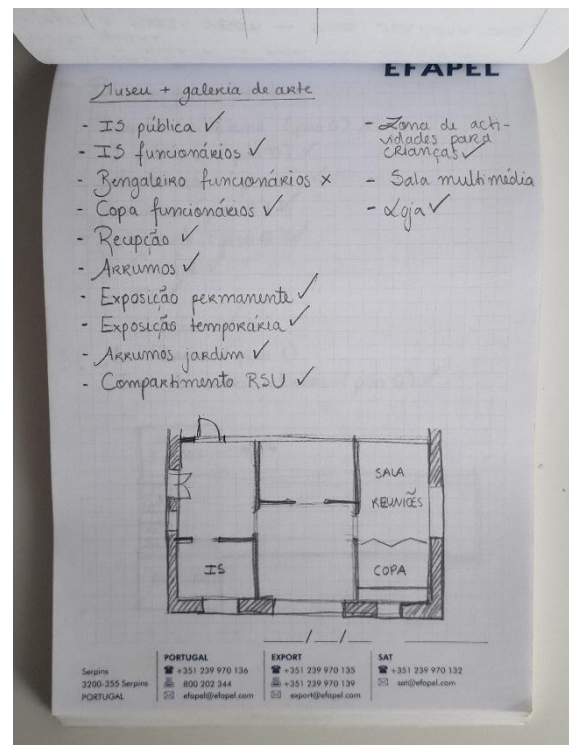 EFAPEL
Museu + galeria de arte
- IS pública ✓
- IS funcionários ✓
- Bengaleiro funcionários ×
- Copa funcionários ✓
- Recepção ✓
- Arrumos ✓
- Exposição permanente ✓
- Exposição temporária ✓
- Arrumos jardim ✓
- Compartimento RSU ✓
- Zona de acti-
vidades para
crianças ✓
- Sala multimédia
- Loja ✓
SALA
REUNIÕES
IS
COPA
___/___/___
Serpins
3200-355 Serpins
PORTUGAL
PORTUGAL
☎ +351 239 970 136
800 202 344
✉ efapel@efapel.com
EXPORT
☎ +351 239 970 135
+351 239 970 139
✉ export@efapel.com
SAT
☎ +351 239 970 132
✉ sat@efapel.com